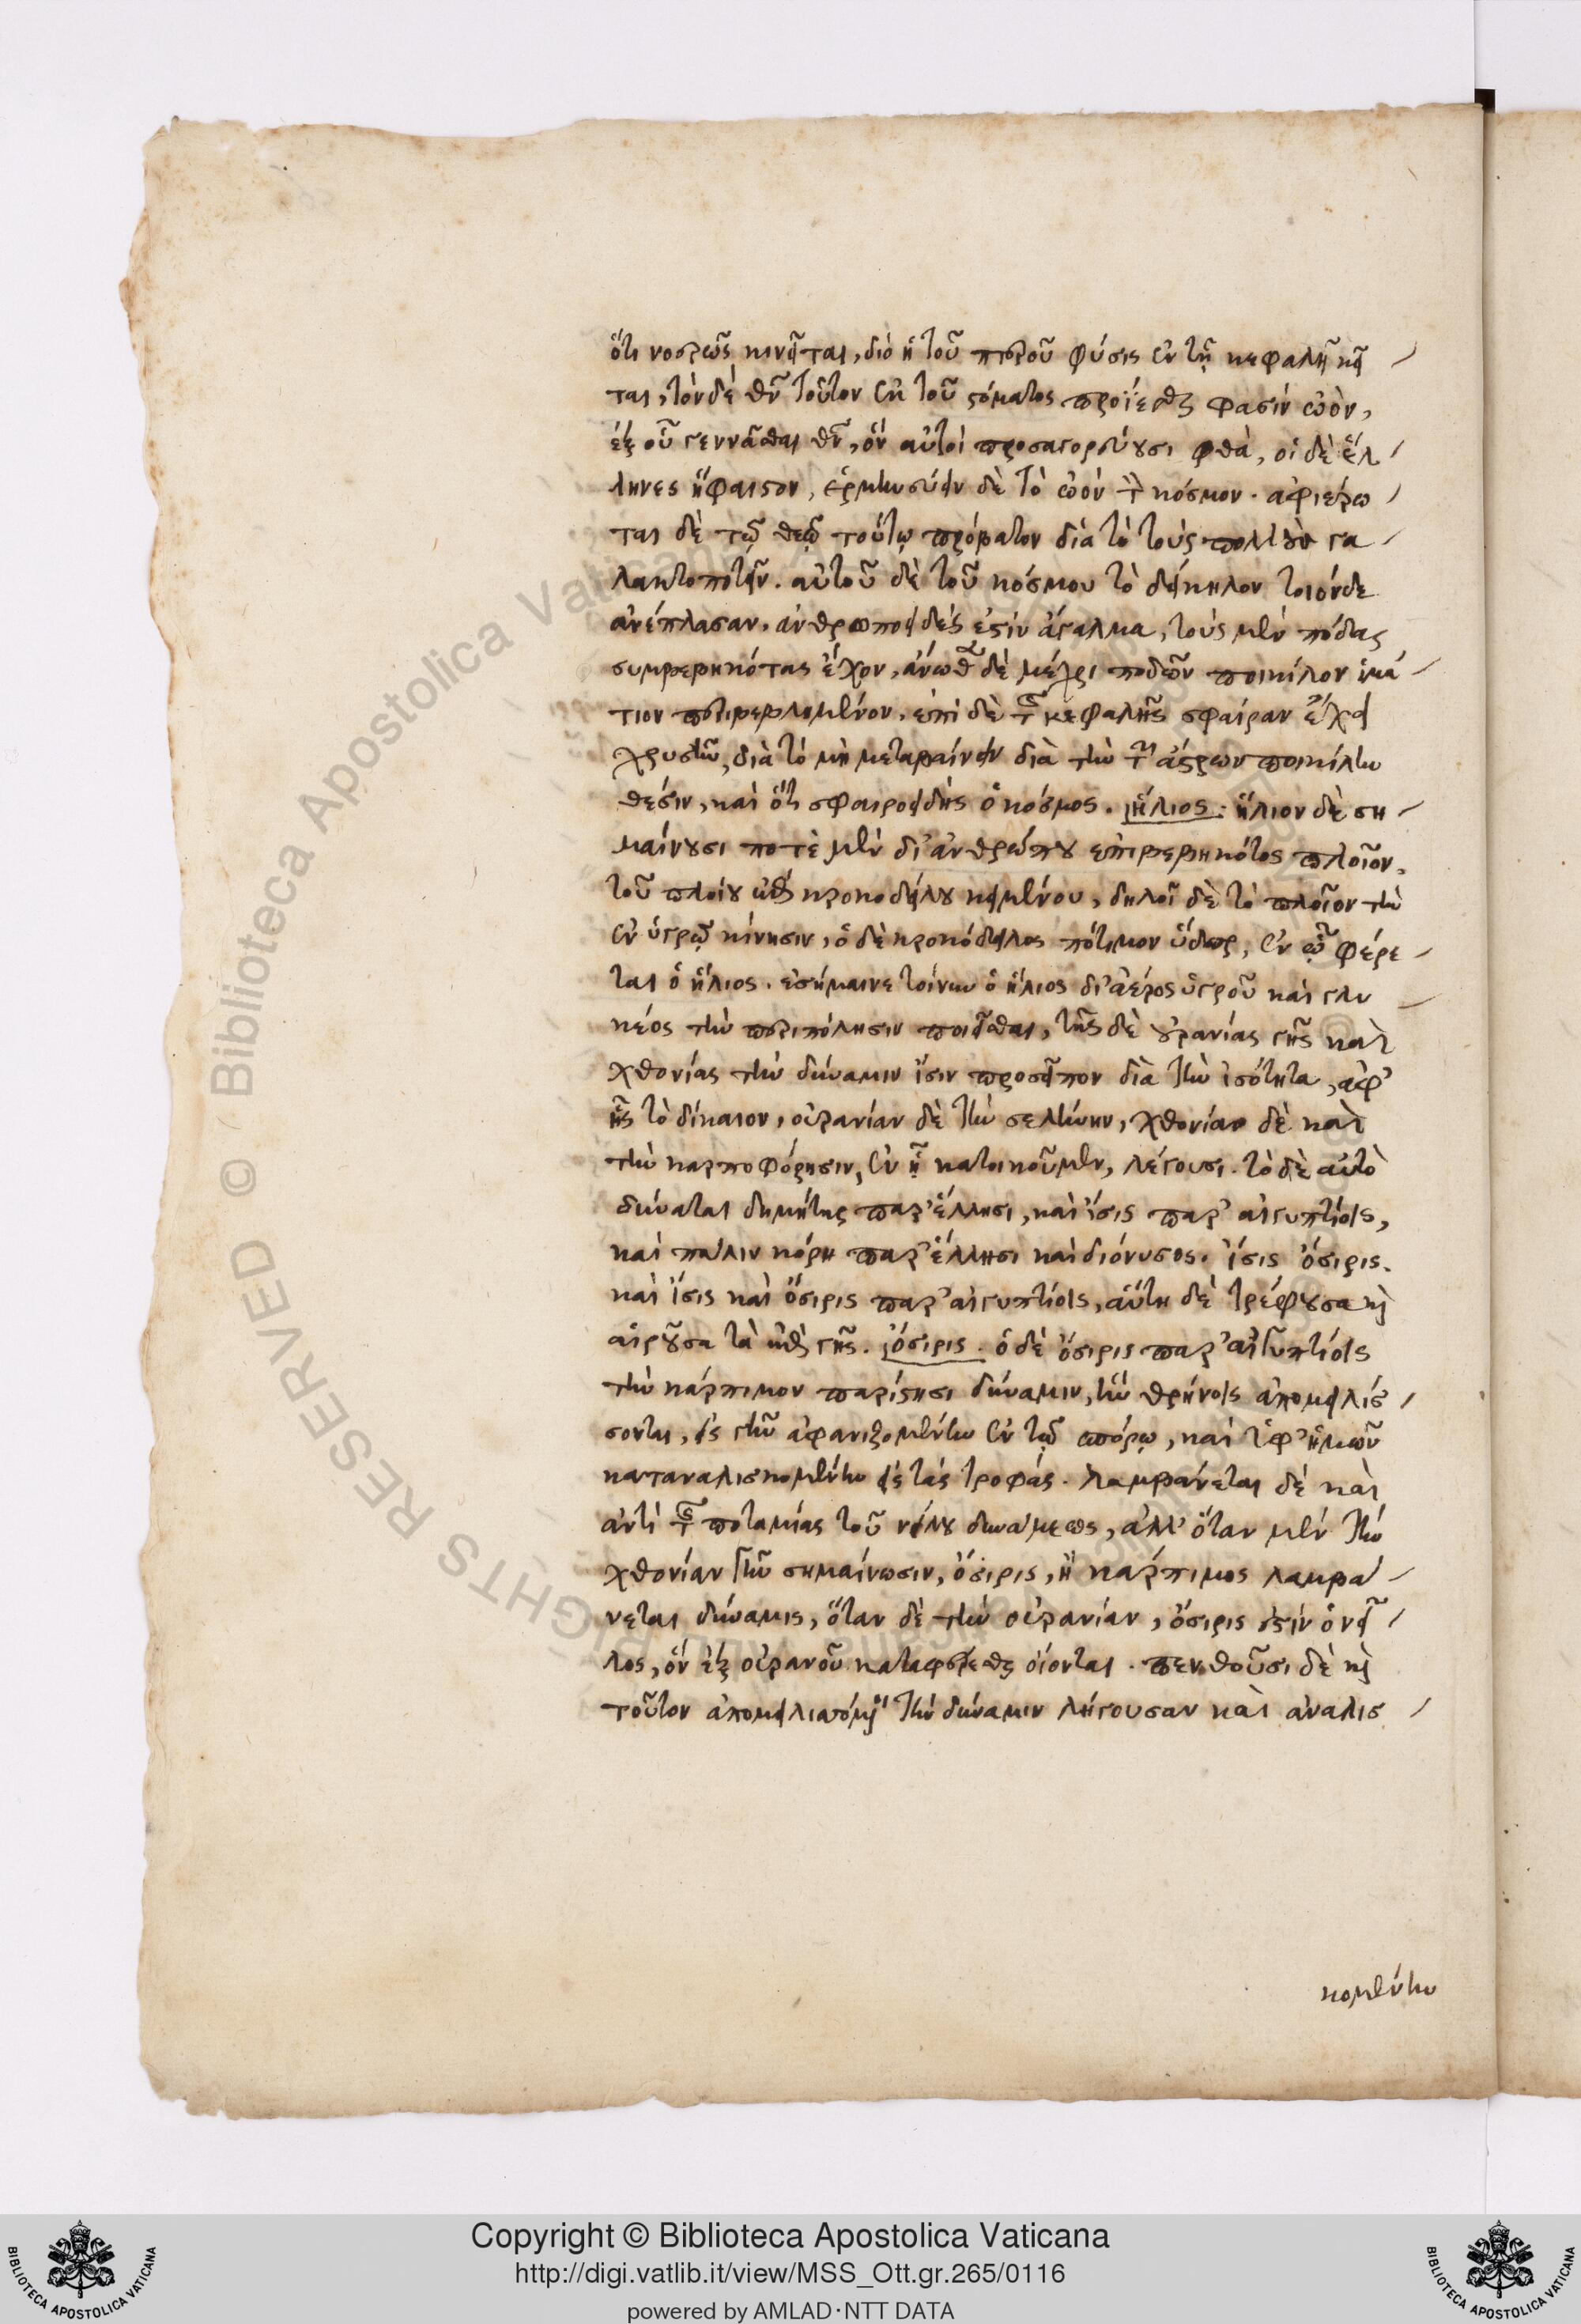 ὅτι νοερῶς κινεῖται, διὸ ἡ τοῦ πτεροῦ φύσις ἐν τῇ κεφαλῇ κεῖ
ται, τὸν δὲ θν͂ τοῦτον ἐκ τοῦ στόματος προΐεσθαι φασὶν ὠὸν,
ἐξ οὗ γεννᾶσθαι θν͂, ὃν αὐτοὶ προσαγορεύουσι φθὰ, οἱ δὲ ἕλ
ληνες ἥφαιστον, ἑρμηνεύειν δὲ τὸ ὠὸν τὸν κόσμον. ἀφιέρω
ται δὲ τῷ θεῷ τούτῳ πρόβατον διὰ τὸ τοὺς πολλοὺς γα
λακτοποτεῖν. αὐτοῦ δὲ τοῦ κόσμου τὸ δείκηλον τοιόνδε
ἀνέπλασαν. ἀνθρωποειδές ἐστιν ἄγαλμα, τοὺς μὲν πόδας
συμβεβηκότας ἔχον, ἄνωθεν δὲ μέχρι ποδῶν ποικίλον ἱμά
τιον περιβεβλημένον. ἐπὶ δὲ τῆς κεφαλῆς σφαῖραν ἔχει
χρυσῆν, διὰ τὸ μὴ μεταβαίνειν διὰ τὴν τῶν ἄστρων ποικίλην
θέσιν, καὶ ὅτι σφαιροειδὴς ὁ κόσμος. ἥλιος: ἥλιον δὲ ση
μαίνουσι ποτὲ μὲν δι' ἀνθρώπου ἐπιβεβηκότος πλοῖον,
τοῦ πλοίου ἐπὶ κροκοδείλου κειμένου, δηλοῖ δὲ τὸ πλοῖον τὴν
ἐν ὑγρῷ κίνησιν, ὁ δὲ κροκόδειλος πότιμον ὕδωρ, ἐν ᾧ φέρε
ται ὁ ἥλιος. ἐσήμαινε τοίνυν ὁ ἥλιος δι' ἀέρος ὑγροῦ καὶ γλυ
κέος τὴν περιπόλησιν ποιεῖσθαι, τῆς δὲ οὐρανίας γῆς καὶ
χθονίας τὴν δύναμιν ἴσιν προσεῖπον διὰ τὴν ἰσότητα, ἀφ'
ἧς τὸ δίκαιον, οὐρανίαν δὲ τὴν σελήνην, χθονίαν δὲ καὶ
τὴν καρποφόρησιν, ἐν ᾗ κατοικοῦμεν, λέγουσι. τὸ δὲ αὐτὸ
δύναται δημήτηρ παρ' ἕλλησι, καὶ ἴσις παρ' αἰγυπτίοις,
καὶ πάλιν κόρη παρ' ἕλλησι καὶ διόνυσος. ἴσις ὄσιρις.
καὶ ἴσις καὶ ὄσιρις παρ' αἰγυπτίοις, αὕτη δὲ τρέφουσα καὶ
αἴρουσα τὰ ἐπὶ γῆς. ὄσιρις. ὁ δὲ ὄσιρις παρ' αἰγυπτίοις
τὴν κάρπιμον παρίστησι δύναμιν, ἣν θρήνοις ἀπομειλίσ
σονται, εἰς γῆν ἀφανιζομένην ἐν τῷ σπόρῳ, καὶ ὑφ' ἡμῶν
καταναλισκομένην εἰς τὰς τροφάς. λαμβάνεται δὲ καὶ
ἀντὶ τῆς ποταμίας τοῦ νείλου δυνάμεως, ἀλλ' ὅταν μὲν τὴν
χθονίαν γῆν σημαίνωσιν, ὄσιρις, ἡ κάρπιμος λαμβά
νεται δύναμις, ὅταν δὲ τὴν οὐρανίαν, ὄσιρις ἐστὶν ὁ νεῖ
λος, ὃν ἐξ οὐρανοῦ καταφέρεσθαι οἴονται. πενθοῦσι δὲ καὶ
τοῦτον ἀπομειλισσόμενοι τὴν δύναμιν λήγουσαν καὶ ἀναλισ
κομένην
Copyright © Biblioteca Apostolica Vaticana
http://digi.vatlib.it/view/MSS_Ott.gr.265/0116
powered by AMLAD·NTT DATA